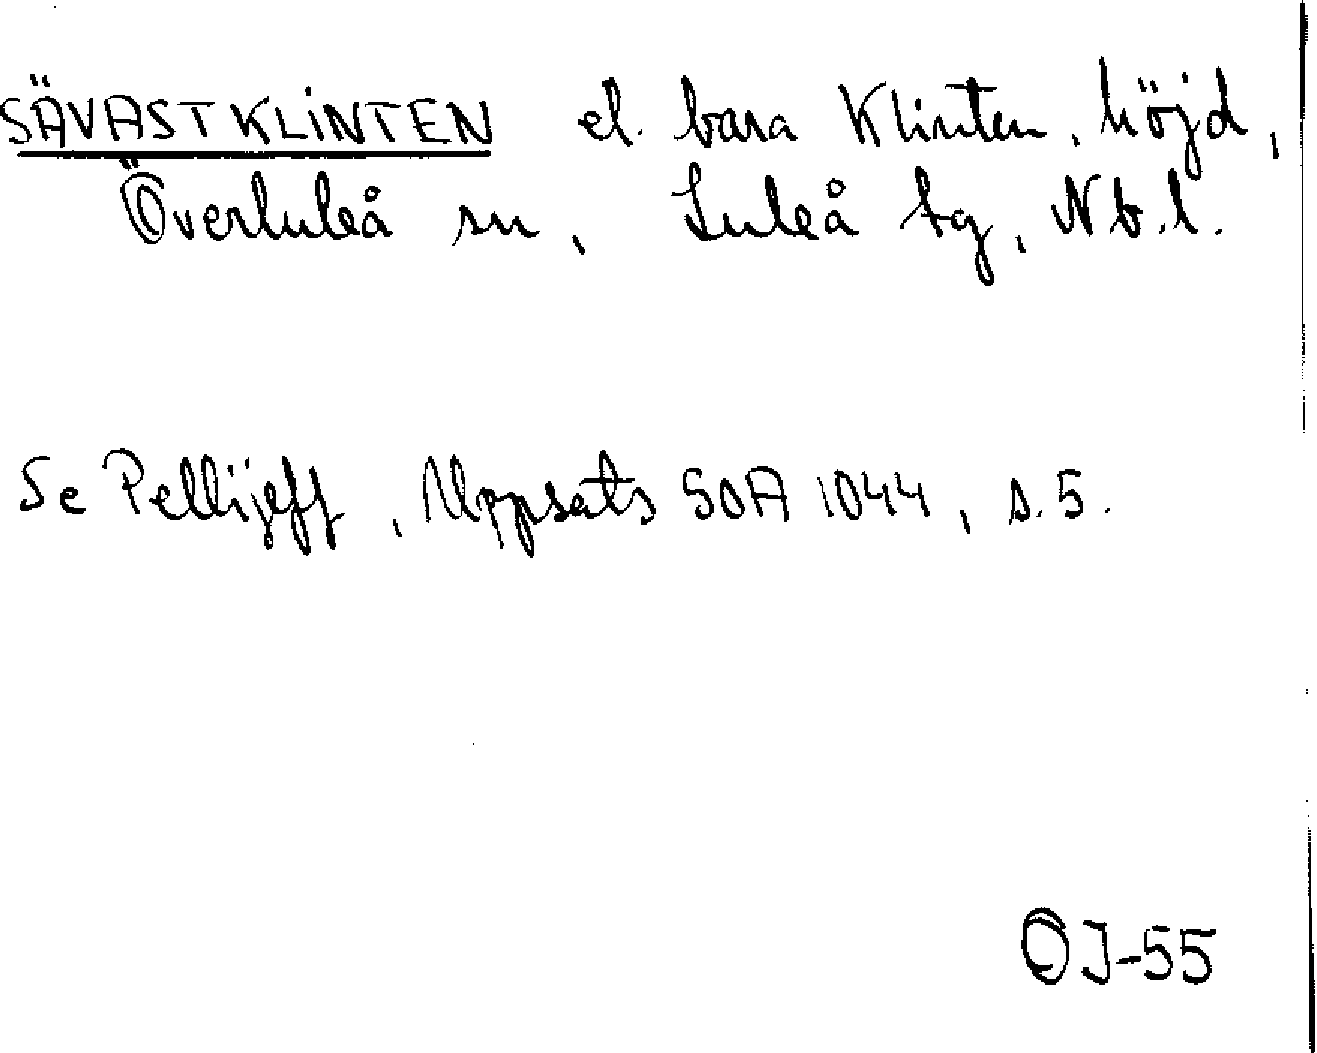 SÄVASTKLINTEN el. bara Klinten, höjd,
Överluleå sn, Luleå tg, Nb.l.
Se Pellijeff, Uppsats SOA 1044, s. 5.
OJ-55